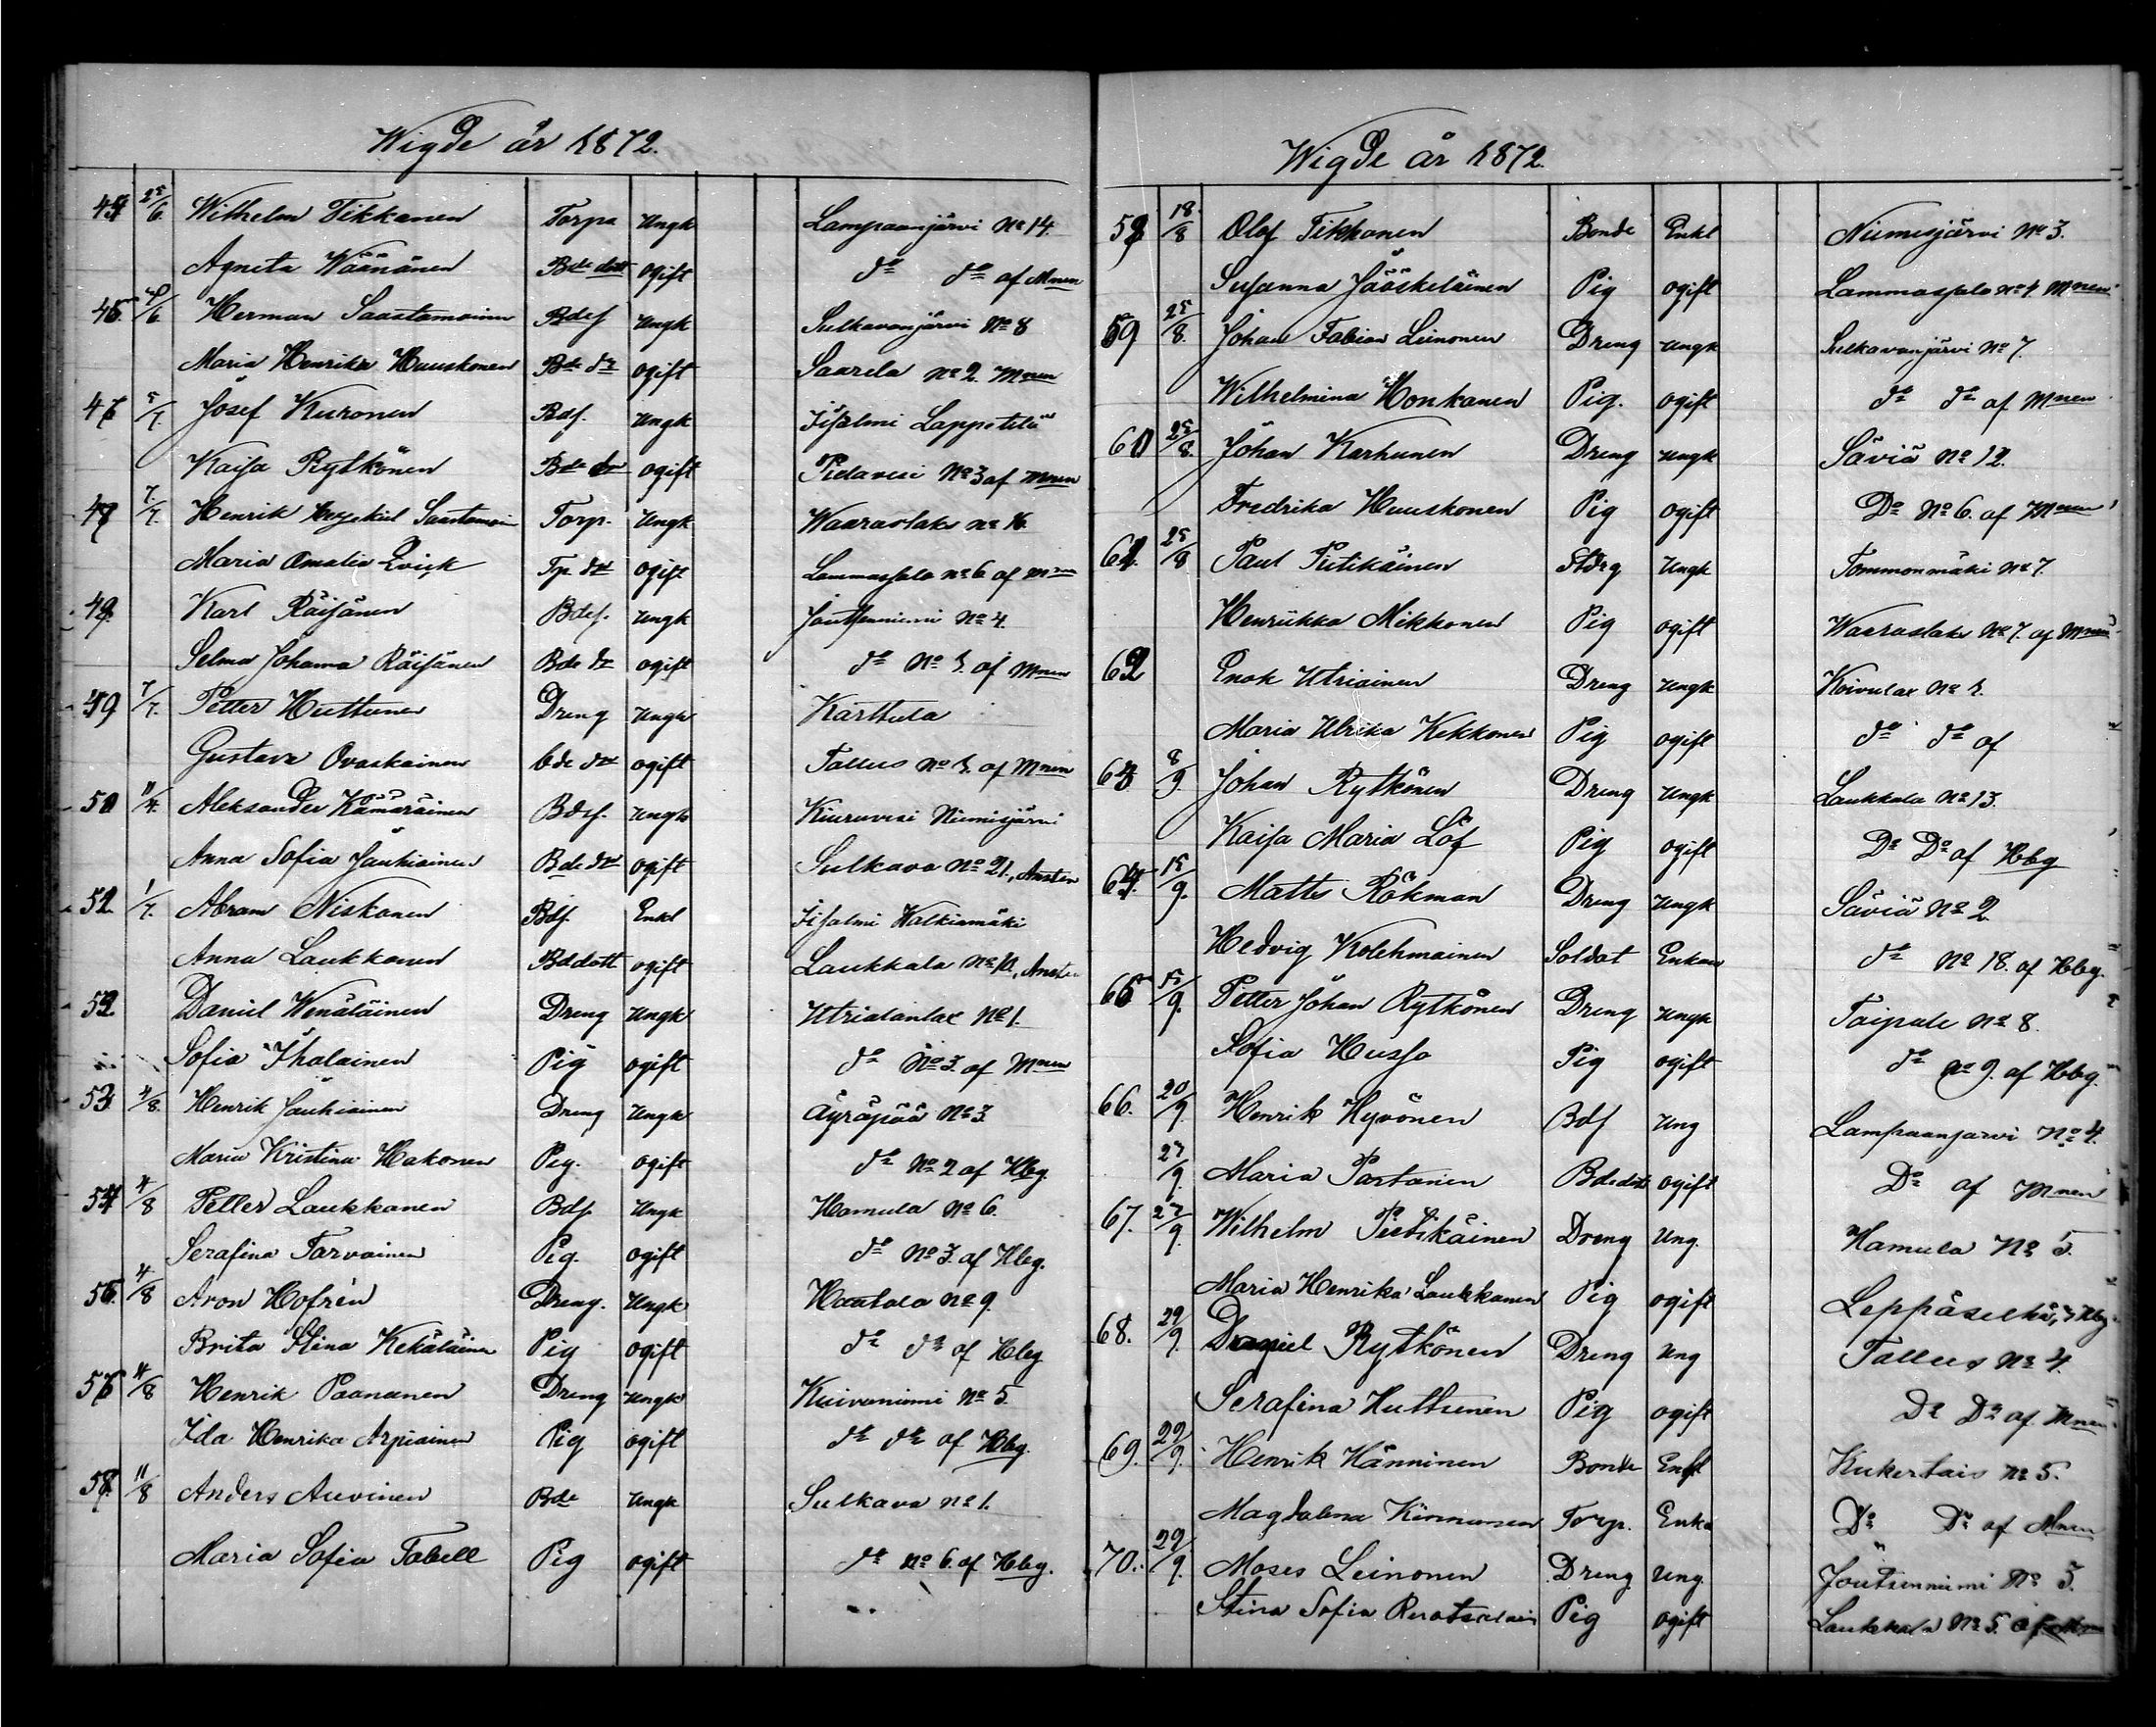 Wigde år 1872.
25/6 Wilhelm Tikkanen Torpa Ungk Lampaanjärvi No 14.
Agneta Wäänänen Bde dott ogift do do af Mnen
Herman Saastamoinen Bdes Ungk Sulkavanjärvi No 8
Maria Henrika Huuskonen Bde dr ogift Saarela No 2. Mnen
5/7. Josef Kuronen Bds. Ungk Iisalmi Lappetelä
Kaisa Rytkönen Bde ogift Pielavesi No 3 af Mnen
7./7. Henrik Saastamoin Torp. Ungk Waaraslaks No
Maria Amalia Qvick Tp dr ogift Lammassalo No 6 af Mnen
Karl Räisänen Bdes. Ungk Joutsenniemi No 4.
Selma Johanna Räisänen Bde dr ogift do No 1. af Mnen
49 7/7. Petter Huttunen Dreng Ungk Karttula
Gustava Ovaskainen bde dr ogift Tallus No 1. af Mnen
Aleksander Kämäräinen Bdes. Ungk Kiuruvesi Niemisjärvi
Anna Sofia Jauhiainen Bde dr ogift Sulkava No 21.
1/7. Abram Niskonen Bds Enkl Iisalmi Walkiamäki
Anna Laukkonen Bddott ogift Laukkala
52 Daniel Wenäläinen Dreng Ungk Utrialanlax No 1.
Sofia Ihalainen Pig ogift do No 3. af Mnen
53. 4/8. Henrik Jauhiainen Dreng Ungk Äyräpää No 3
Maria Kristina Hakonen Pig. ogift do No 2 af Hbg.
54 4/8 Petter Laukkanen Bds Ungk Hamula No 6.
Serafina Tarvainen Pig. ogift do No 3. af Hbg.
55. 4/8 Aron Hofrén Dreng. Ungk Hautala No 9
Brita Stina Kekäläinen Pig ogift do do af Hbg
56 4/8 Henrik Paananen Dreng Ungk Kuivaniemi No 5.
Ida Henrika Arpiainen Pig ogift do do af Hbg.
11/8 Anders Auvinen Bde Ungk Sulkava No 1.
Maria Sofia Tabell Pig ogift do No 6. af Hbg.
Wigde år 1872.
18/8 Olof Tikkanen Bonde Enkl Niemisjärvi No 3.
Susanna Jääskeläinen Pig ogift Lammassalo No 4. Mnen
59 25/8. Johan Fabian Leinonen Dreng Ungk Sulkavanjärvi No 7.
Wilhelmina Honkanen Pig. ogift do do af Mnen
60 25/8. Johan Karhunen Dreng Ungk Säviä No 12.
Fredrika Huuskonen Pig ogift Do No 6. af Mnen
25/8 Paul Pietikäinen Stdrg Ungk Tommonmäki No 7.
Henriikka Mikkonen Pig ogift Waaraslaks No 7. af Mnen
62 Enok Utriainen Dreng Ungk Koivulax No 1.
Maria Ulrika Kekkonen Pig ogift do do af
63 8/9. Johan Rytkönen Dreng Ungk Laukkala No 13.
Kaisa Maria Löf Pig ogift Do Do af Hbg
64. 15/9. Matts Rökman Dreng Ungk Säviä No 2
Hedvig Kolehmainen Soldat Enkan do No 18. af Hbg.
65 15/9. Petter Johan Rytkönen Dreng Ungk Taipale No 8.
Sofia Husso Pig ogift do No 9. af Hbg.
66. 20/9. Henrik Hyvönen Bds Ung Lampaanjarvi No 4.
27/9. Maria Partanen Bdedott ogift Do af Mnen
67. 27/9. Wilhelm Pietikäinen Dreng Ung. Hamula No 5.
Maria Henrika Laukkanen Pig ogift Leppäselkä, Hbg
68. 29/9. Daniel Rytkönen Dreng Ung Tallus No 4.
Serafina Huttunen Pig ogift Do Do af Mnen
69. 29/9. Henrik Hänninen Bonde Enkl Kukertais No 5.
Magdalena Kinnunen Torp. Enka Do Do af Mnen
70. 29/9. Moses Leinonen Dreng Ung. Joutsenniemi No 5.
Stina Sofia Pig ogift Laukkala No 5. af